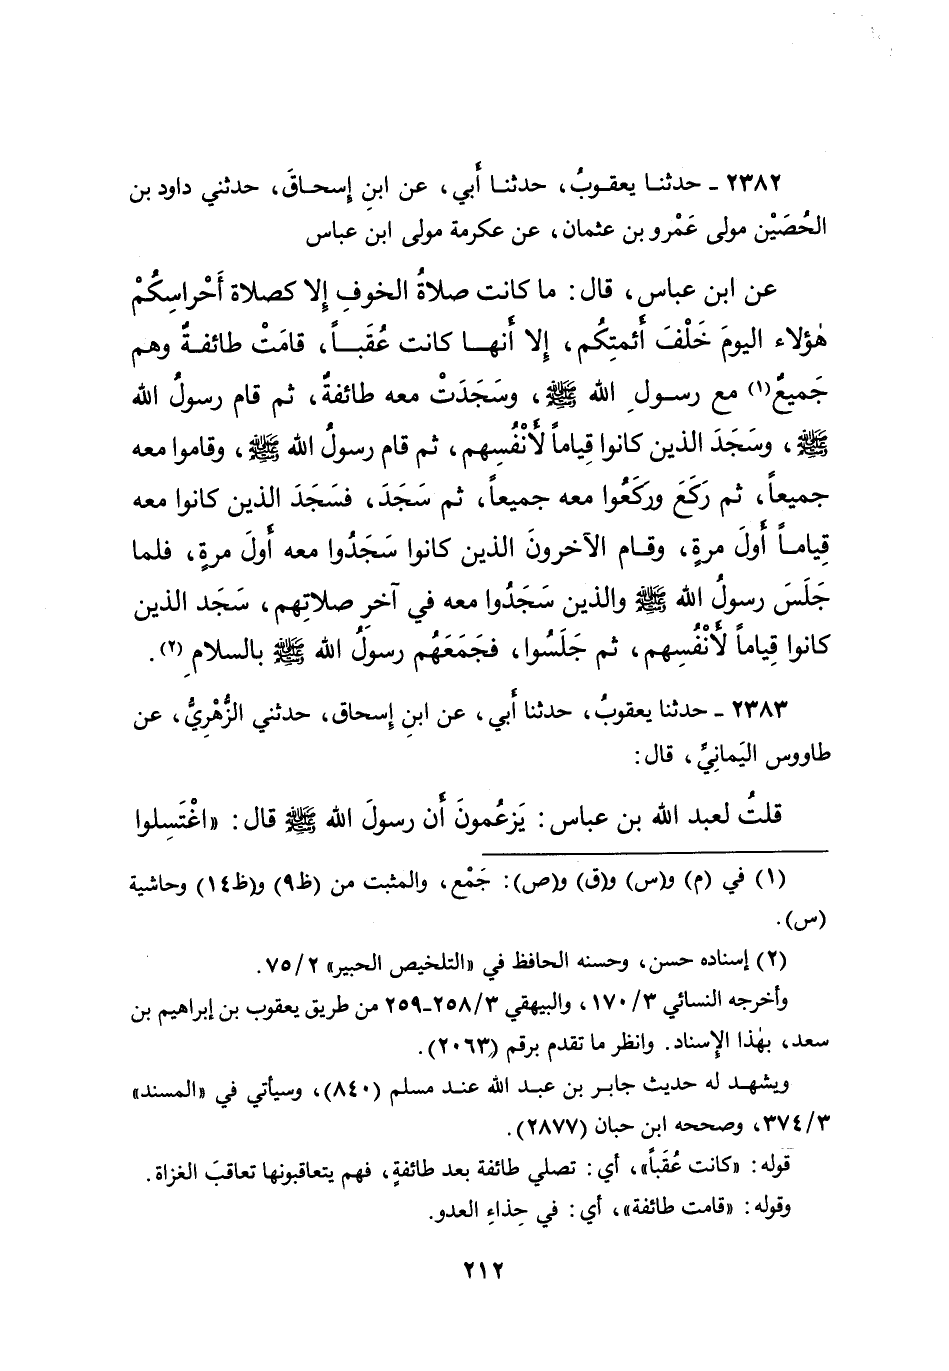 ٢٣٨٢ ـ حدثنـا يعقـوبُ، حدثنـا أَبي، عن ابنِ إِسحـاقَ، حدثني داود بن
الحُصَيْن مولى عَمْرو بن عثمان، عن عكرمة مولى ابن عباس
عن ابن عباس، قال: ما كانت صلاةُ الخوفِ إِلا كصلاة أَحْراسِكُمْ
هٰؤلاء اليومَ خَلْفَ أَئمتِكُم، إِلا أَنهـا كانت عُقَبـاً، قامَتْ طائفـةٌ وهم
جَميعٌ(١) مع رسـولِ الله ﷺ، وسَجَدَتْ معه طائفةٌ، ثم قام رسولُ الله
ﷺ، وسَجَدَ الذين كانوا قِياماً لأَنْفُسِهم، ثم قام رسولُ الله ﷺ، وقاموا معه
جميعاً، ثم رَكَعَ وركَعُوا معه جميعاً، ثم سَجَدَ، فسَجَدَ الذين كانوا معه
قِيامـاً أَولَ مرةٍ، وقـام الآخرونَ الذين كانوا سَجَدُوا معه أَولَ مرةٍ، فلما
جَلَسَ رسولُ الله ﷺ والذين سَجَدُوا معه في آخرِ صلاتِهم، سَجَد الذين
كانوا قِياماً لأَنْفُسِهم، ثم جَلَسُوا، فجَمَعَهُم رسولُ الله ﷺ بالسلامِ(٢).
٢٣٨٣ ـ حدثنا يعقوبُ، حدثنا أَبي، عن ابنِ إِسحاق، حدثني الزُّهْرِيُّ، عن
طاووس اليَمانِيِّ، قال:
قلتُ لعبد الله بن عباس: يَزعُمونَ أَن رسولَ الله ﷺ قال: «اغْتَسِلوا
(١) في (م) و(س) و(ق) و(ص): جَمْع، والمثبت من (ظ٩) و(ظ١٤) وحاشية
(س).
(٢) إسناده حسن، وحسنه الحافظ في «التلخيص الحبير» ٧٥/٢.
وأخرجه النسائي ١٧٠/٣، والبيهقي ٢٥٨/٣-٢٥٩ من طريق يعقوب بن إبراهيم بن
سعد، بهٰذا الإِسناد. وانظر ما تقدم برقم (٢٠٦٣).
ويشهـد له حديث جابـر بن عبـد الله عنـد مسلم (٨٤٠)، وسيأتي في «المسند»
٣٧٤/٣، وصححه ابن حبان (٢٨٧٧).
قوله: «كانت عُقَباً»، أي: تصلي طائفة بعد طائفةٍ، فهم يتعاقبونها تعاقبَ الغزاة.
وقوله: «قامت طائفة»، أي: في حِذاءِ العدو.
٢١٢